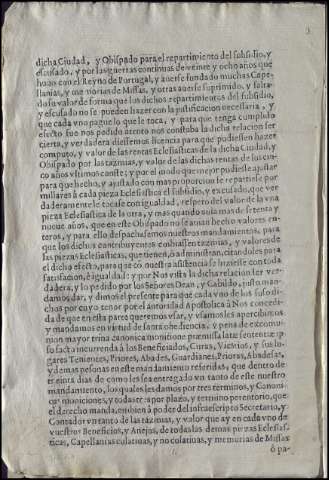 dicha Ciudad, y Obispado para el repartimiento del subsidio, y
escusado, y por las guerras continuas de veinte y ocho años que
huuo con el Reyno de Portugal, y auerse fundado muchas Cape-
llanias, y memorias de Missas, y otras auerse suprimido, y falta-
do su valor de forma que los dichos repartimientos del subsidio,
y escusado no se pueden hazer con la justificacion necessaria, y
que cada vno pague lo que le toca, y para que tenga cumplido
efecto fue nos pedido atento nos constaba la dicha relacion ser
cierta, y verdadera diessemos licencia para que pudiessen hazer
computo, y valor de las rentas Eclesiasticas de la dicha Ciudad, y
Obispado por las tazmias, y valor de dichas rentas de los cin-
co años vltimos
para que hecho, y ajustado con mas proporcion se repartiesse por
millares à cada pieza Eclesiastica el subsidio, y escusado, que ver
daderamente le tocasse con igualdad, respeto del valor de la vna
pieza Eclesiastica de la otra, y mas quando
nueue años, que en este Obispado no se avian hecho valores en-
teros, y para ello despachassemos nuestros mandamientos, para
que los dichos contribuyentes embiassen tazmias, y valores de
las piezas Eclesiasticas, que tienen, ò administran, citandoles para
el dicho efecto, para que cõ nuestra asistencia se hiziesse con toda
satisfacion, è igualdad: y por Nos vista la dicha relacion ser ver-
dadera, y lo pedido por los Señores Dean, y Cabildo, justo man-
damos dar, y dimos el presente para que cada vno de los suso di-
chos por cuyo tenor por el autoridad Apostolica à Nos concedi-
da de que en esta parte queremos vsar, y vsamos les apercibimos
y mandamos en virtud de santa obediencia, y pena de excomu-
nion mayor trina canonica monitione præmissa latæ sententiæ ip-
so facto incurrenda à los Beneficiados, Curas, Vicarios, y sus lu-
gares Tenientes, Priores, Abades, Guardianes, Prioras, Abadesas,
y demas personas en este mandamiento referidas, que dentro de
treinta dias de como les sea entregado vn tanto de este nuestro
mandamiento, los quales les damos por tres terminos, y Canoni-
cas moniciones, y todas tres por plazo, y termino perentorio, que
el derecho manda, embien à poder del infraescripto Secretario, y
Contador vn tanto de las tazmias, y valor que ay en cada vno de
vuestros Beneficios, y Anejos, de todas las demas piezas Eclesias-
ticas, Capellanias colatiuas, y no colatiuas, y memorias de Missas
ò pa-